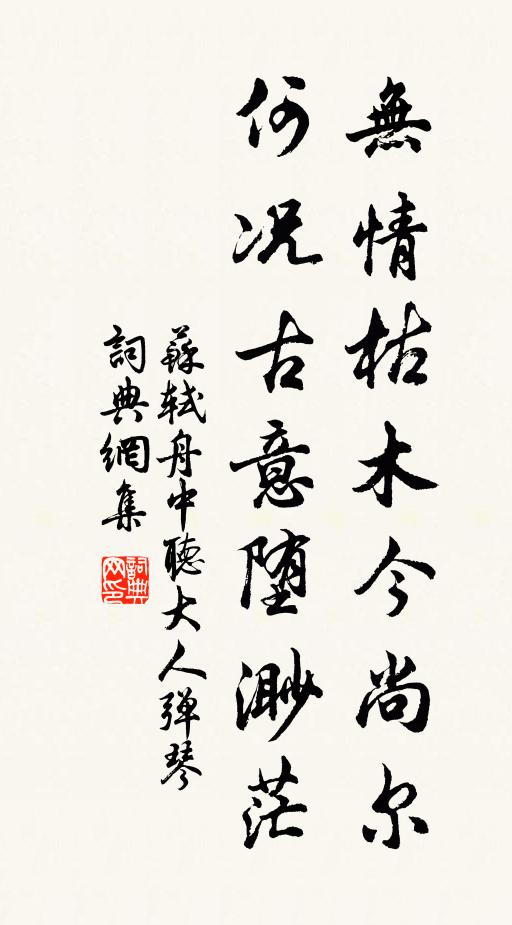 無情枯木今尚尔
何况古意堕渺茫
蘇軾舟中聽大人弹琴
詞典網集
詞典网印